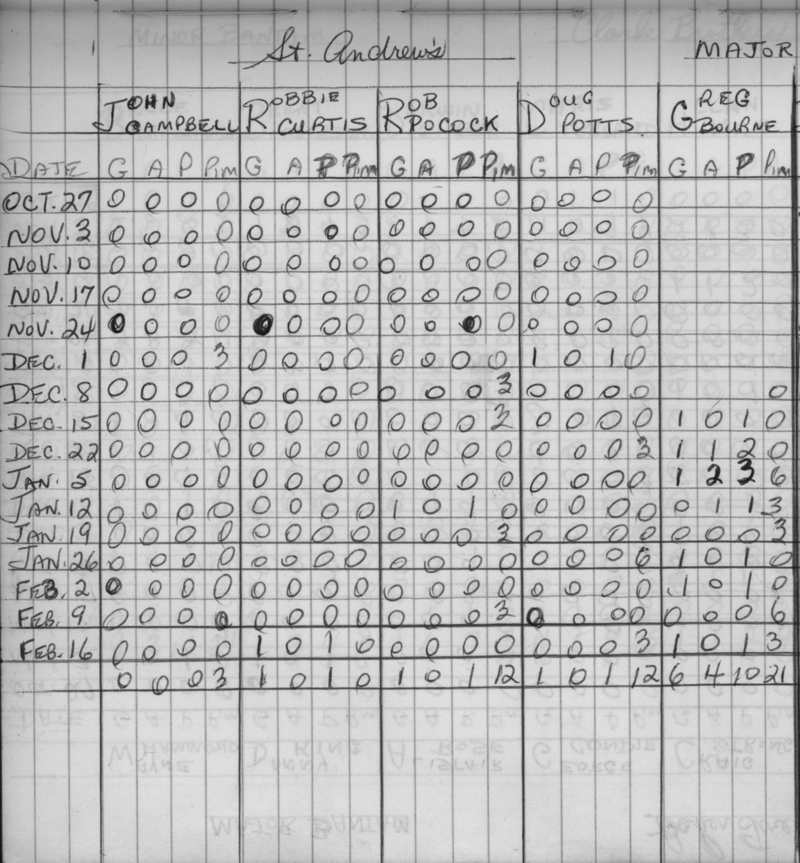 St. Andrew's MAJOR
JOHN CAMPBELL ROBBIE CURTIS ROB POCOCK DOUG POTTS. GREG BOURNE
DATE G A P P,m G A P P,m G A P P,m G A P P,m G A P P,m
OCT. 27 0 0 0 0 0 0 0 0 0 0 0 0 0 0 0 0
NOV. 3 0 0 0 0 0 0 0 0 0 0 0 0 0 0 0 0
NOV. 10 0 0 0 0 0 0 0 0 0 0 0 0 0 0 0 0
NOV. 17 0 0 0 0 0 0 0 0 0 0 0 0 0 0 0 0
NOV. 24 0 0 0 0 0 0 0 0 0 0 0 0 0 0 0 0
DEC. 1 0 0 0 3 0 0 0 0 0 0 0 0 1 0 1 0
DEC. 8 0 0 0 0 0 0 0 0 0 0 0 3 0 0 0 0 0
DEC. 15 0 0 0 0 0 0 0 0 0 0 0 3 0 0 0 0 1 0 1 0
DEC. 22 0 0 0 0 0 0 0 0 0 0 0 0 0 0 0 3 1 1 2 0
JAN. 5 0 0 0 0 0 0 0 0 0 0 0 0 0 0 0 0 1 2 3 6
JAN. 12 0 0 0 0 0 0 0 0 1 0 1 0 0 0 0 0 0 1 1 3
JAN. 19 0 0 0 0 0 0 0 0 0 0 0 3 0 0 0 0 0 0 0 3
JAN. 26 0 0 0 0 0 0 0 0 0 0 0 0 0 0 0 6 1 0 1 0
FEB. 2 0 0 0 0 0 0 0 0 0 0 0 0 0 0 0 0 1 0 1 0
FEB. 9 0 0 0 0 0 0 0 0 0 0 0 3 0 0 0 0 0 0 0 6
FEB. 16 0 0 0 0 1 0 1 0 0 0 0 0 0 0 0 3 1 0 1 3
0 0 0 3 1 0 1 0 1 0 1 12 1 0 1 12 6 4 10 21